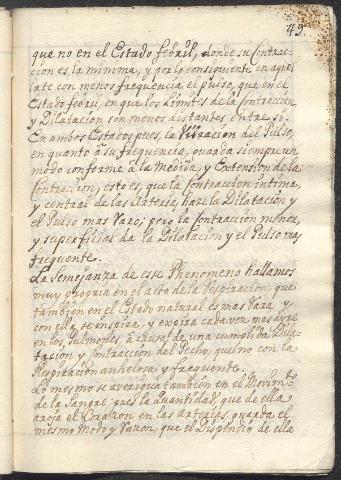 49.
que no en el Estado febril, donde su Contrac-
cion es la minima, y por lo consiguiente en aquel
late con menos frequencia el pulso, que en el
Estado febril, en que los Limites de la Contraccion,
y Dilatacion son menos distantes entre si.
En ambos Estados pues, la Vibracion del Pulso,
en quanto à su frequencia, guarda siempre un
modo conforme à la Medida, y Extension de la
Contraccion, esto es, que la Contraccion intima,
y central de las Arterias haze la Dilatacion y
el Pulso mas Raro; pero la Contraccion menor,
y superficial da la Dilatacion y el Pulso mas
frequente.
La semejanza de esse Phenomeno hallamos
muy propria en el acto de la Respiracion, que
tambien en el Estado natural es mas Rara y
con ella se inspira, y expira cada vez mas ayre
en los Pulmones, à causa de una cumplida Dila-
tacion y Contraccion del Pecho, que no con la
Respiracion anhelosa y frequente.
Lo mesmo se averigua tambien en el Movim.to
de la Sangre; pues la quantidad, que de ella
aroja el Corazon en las Arterias, guarda el
mesmo Modo y Razon, que el Dispendio de ella